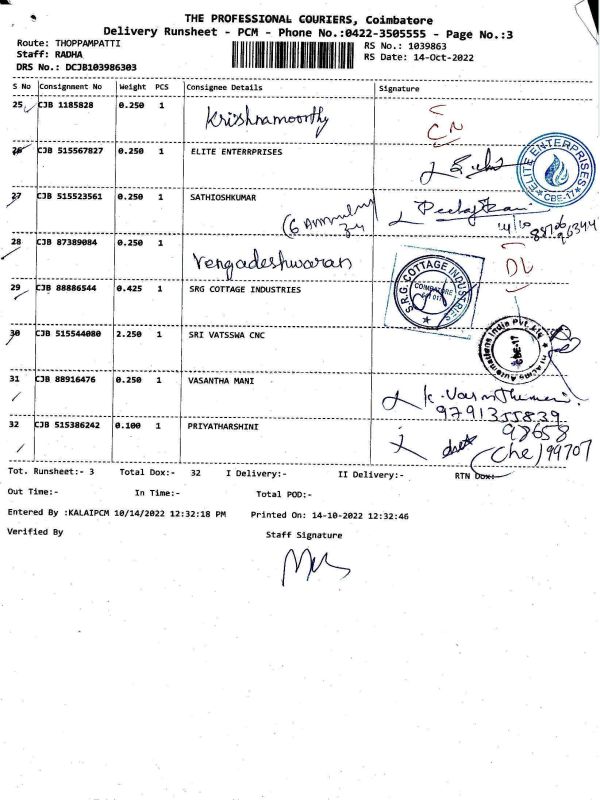 THE PROFESSIONAL COURIERS, Coimbatore
Delivery Runsheet - PCM - Phone No.:0422-3505555 - Page No.:3
Route: THOPPAMPATTI
RS No.: 1039863
Staff: RADHA
RS Date: 14-Oct-2022
DRS No.: DCJB103986303
S No Consignment No Weight PCS Consignee Details Signature
25 CJB 1185828 0.250 1 Krishnamoorthy
CN
26 CJB 515567827 0.250 1 ELITE ENTERRPRISES
ELITE ENTERPRISES CBE-17
27 CJB 515523561 0.250 1 SATHIOSHKUMAR
14/10
28 CJB 87389084 0.250 1 Vengadeshwaran
DL
29 CJB 88886544 0.425 1 SRG COTTAGE INDUSTRIES
S.R.G. COTTAGE INDUSTRIES COIMBATORE
30 CJB 515544080 2.250 1 SRI VATSSWA CNC
Automations India Pvt. Ltd CBE-17
31 CJB 88916476 0.250 1 VASANTHA MANI
K. Vasanthamani
9791355839
32 CJB 515386242 0.100 1 PRIYATHARSHINI
98658
99707
(che)
Tot. Runsheet:- 3 Total Dox:- 32 I Delivery:- II Delivery:- RTN Dox:-
Out Time:- In Time:- Total POD:-
Entered By :KALAIPCM 10/14/2022 12:32:18 PM Printed On: 14-10-2022 12:32:46
Verified By Staff Signature